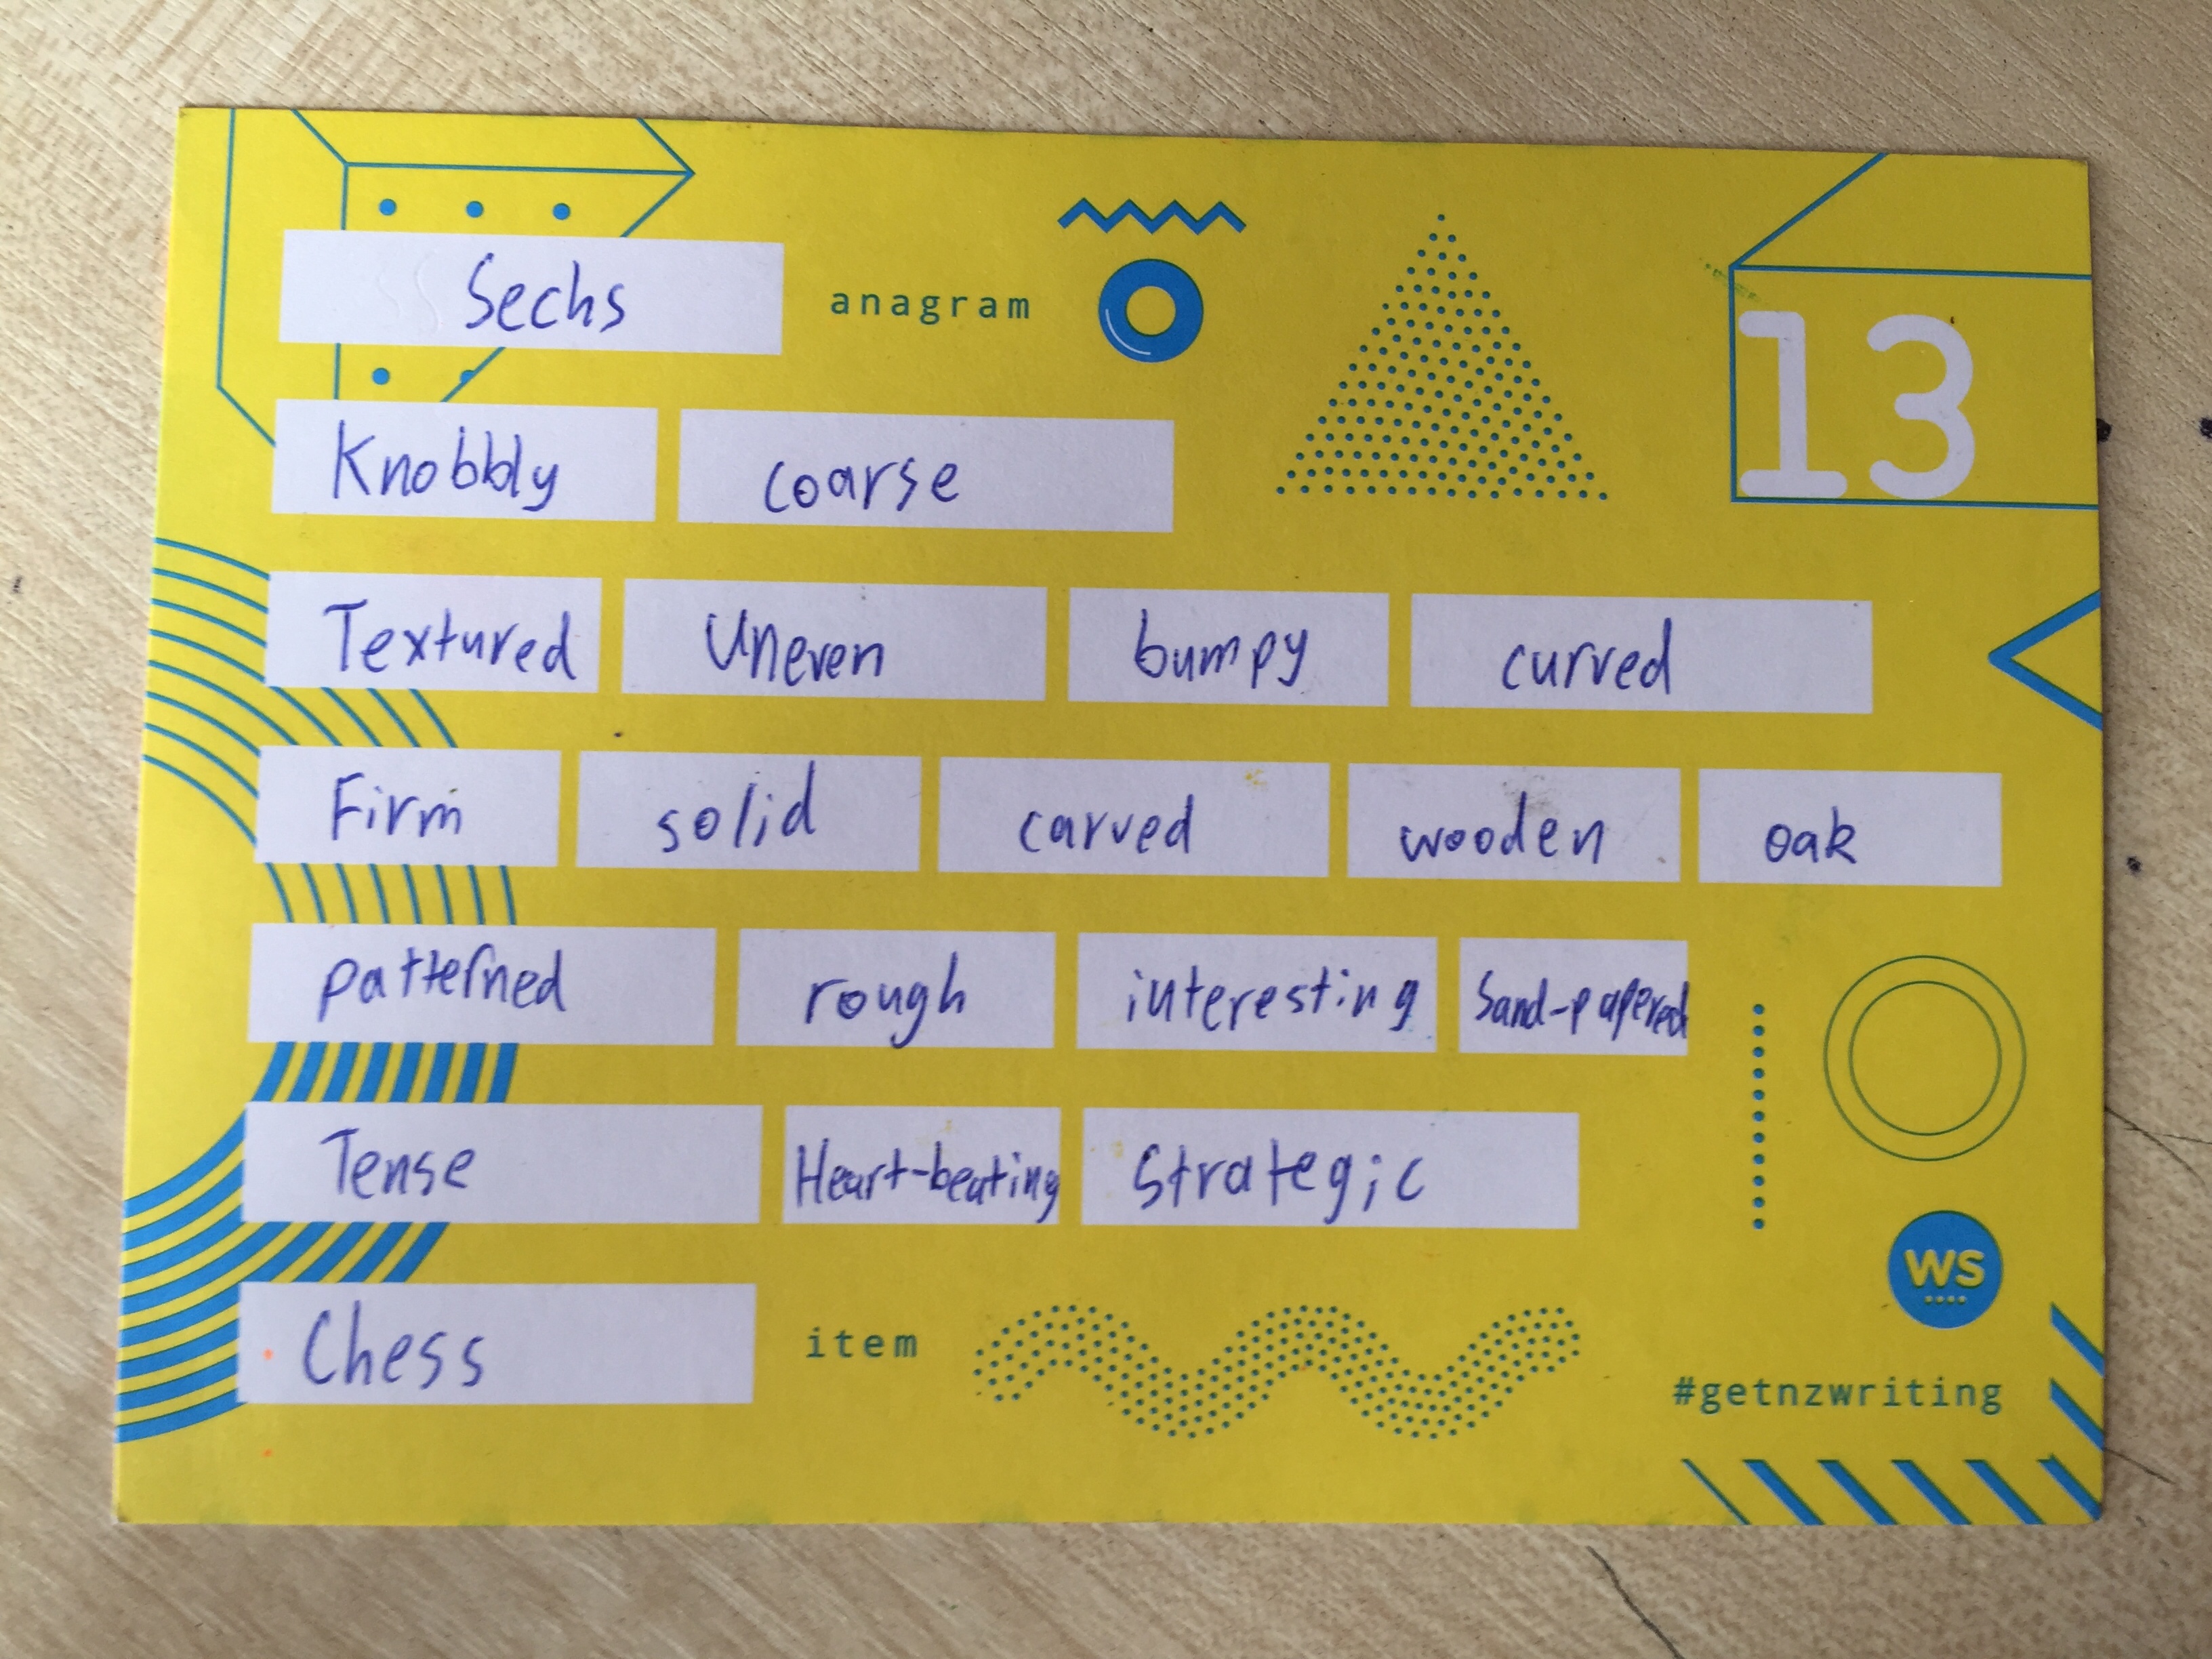 Sechs anagram
13
Knobbly coarse
Textured Uneven bumpy curved
Firm solid carved wooden oak
patterned rough interesting Sand-papered
Tense Heart-beating Strategic
WS
Chess item
#getnzwriting